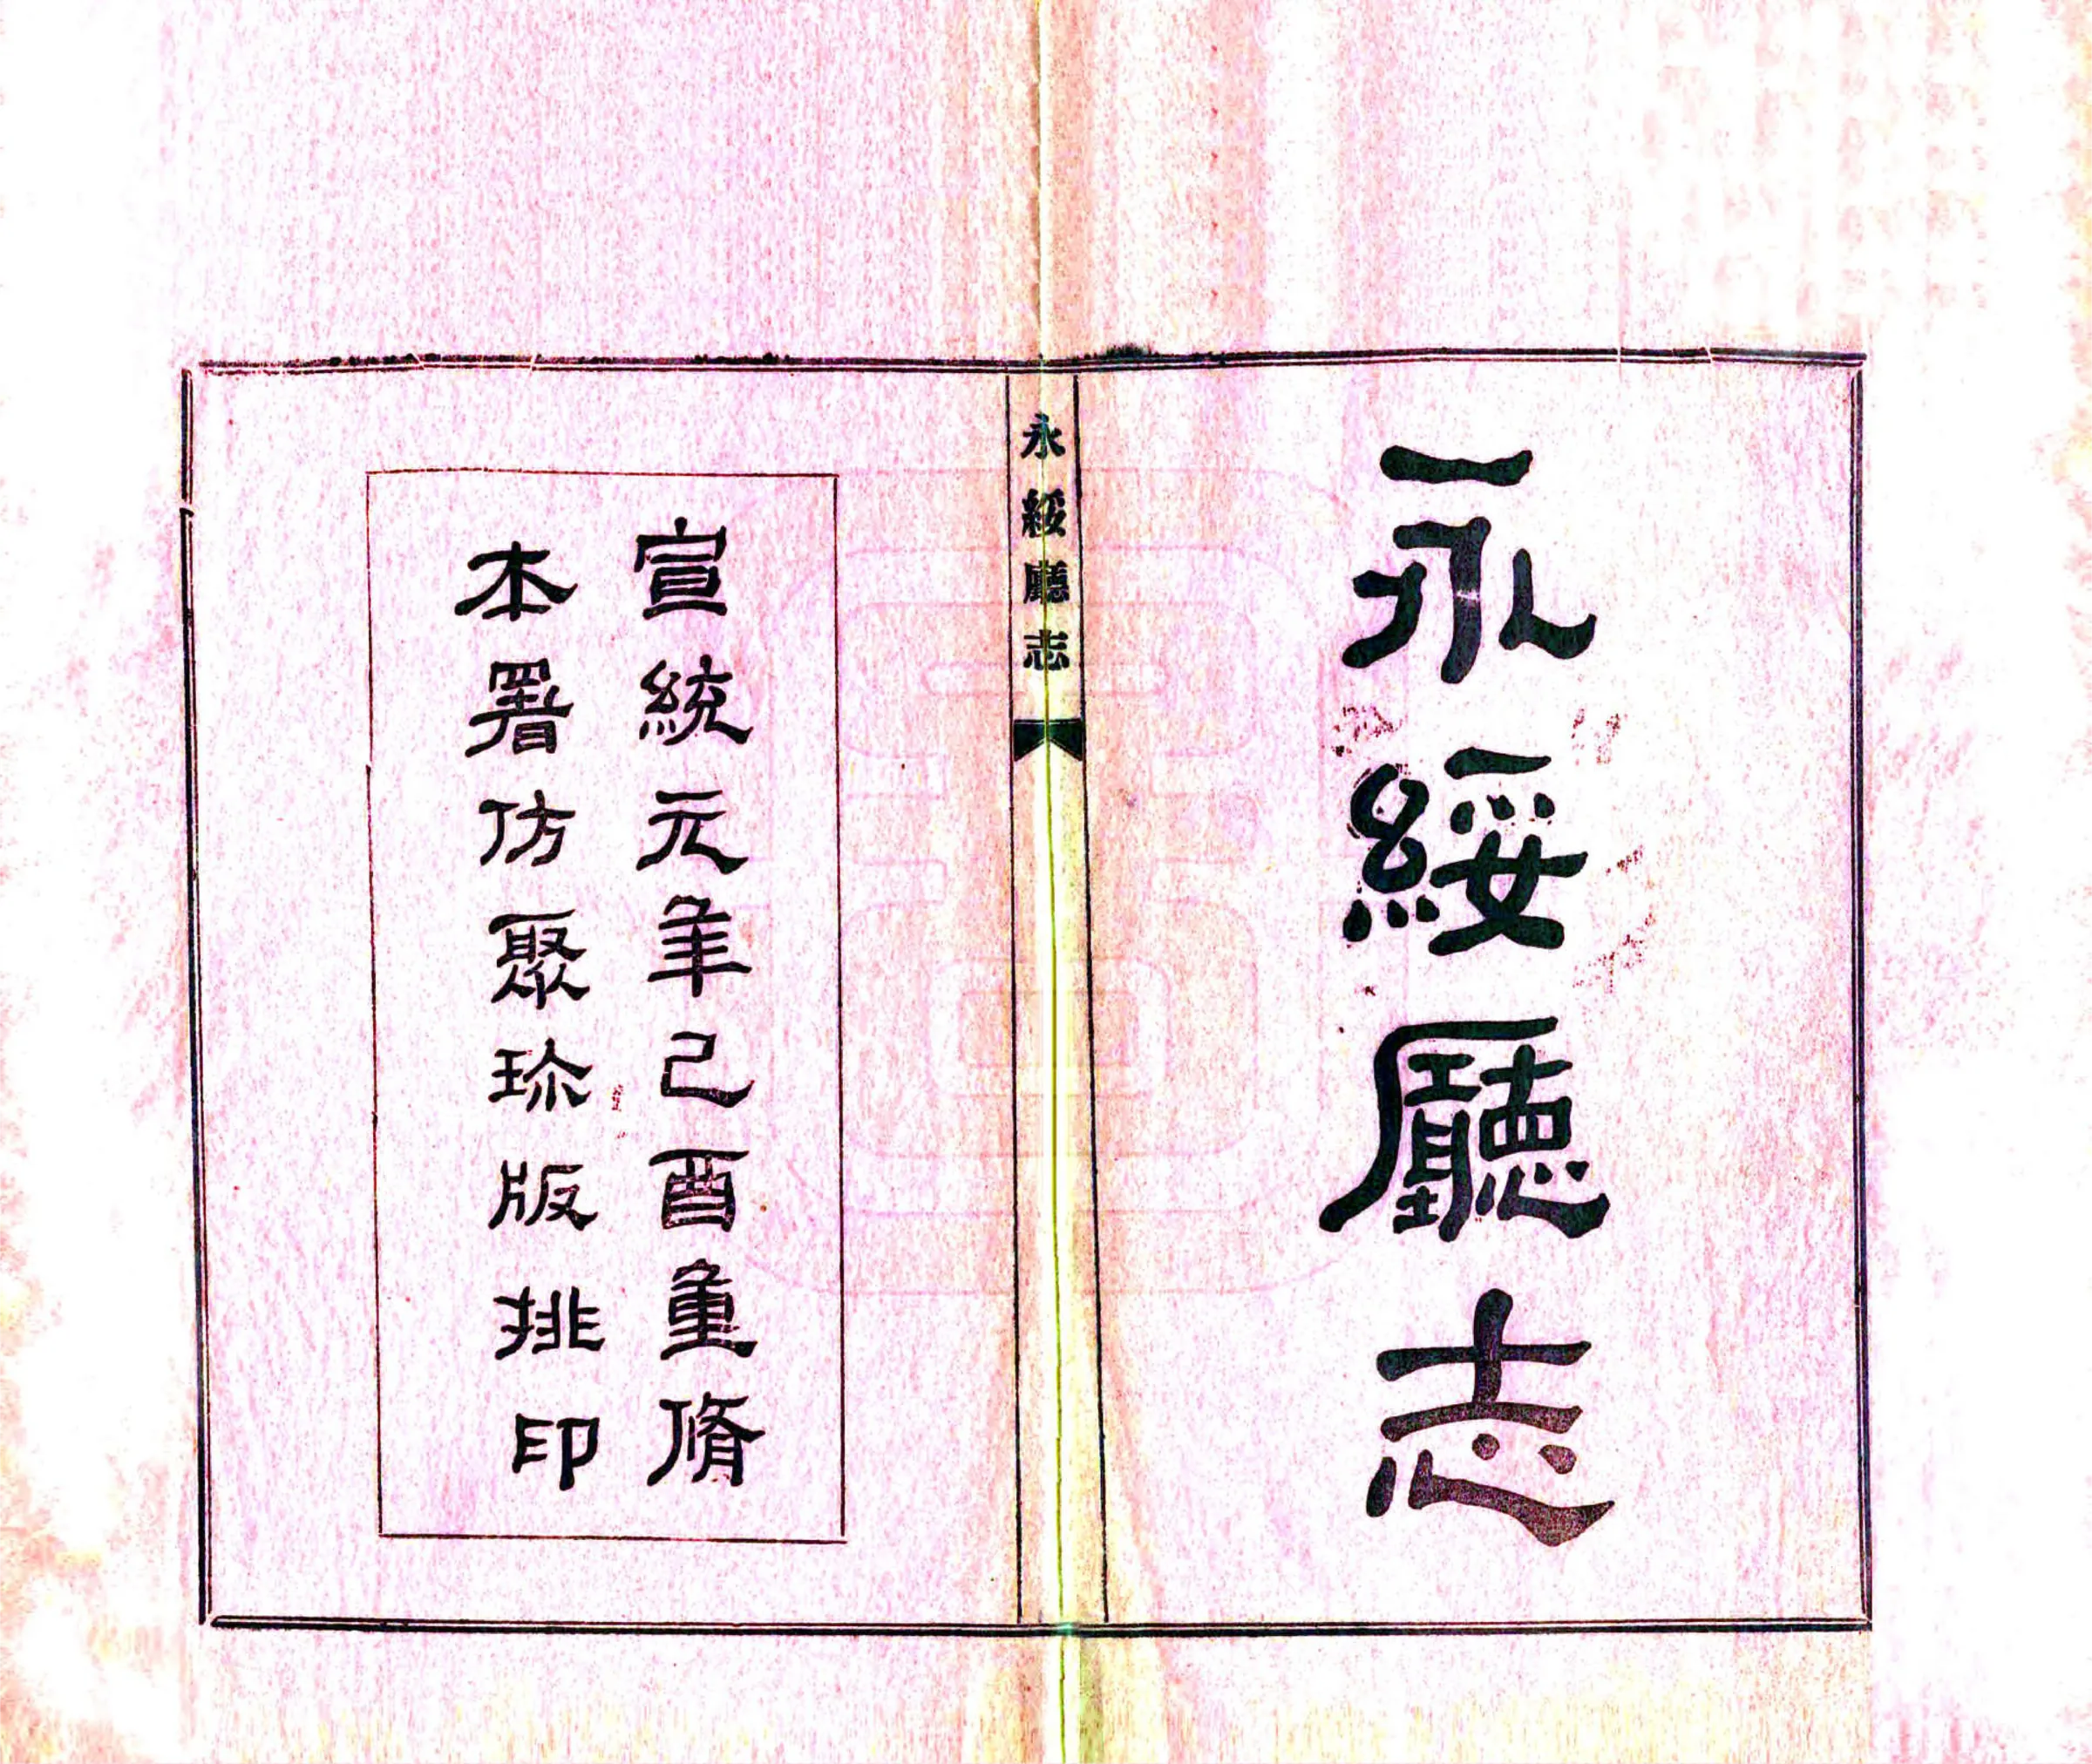 永綏廳志
永綏廳志
宣統元年己酉重脩
本署仿聚珍版排印